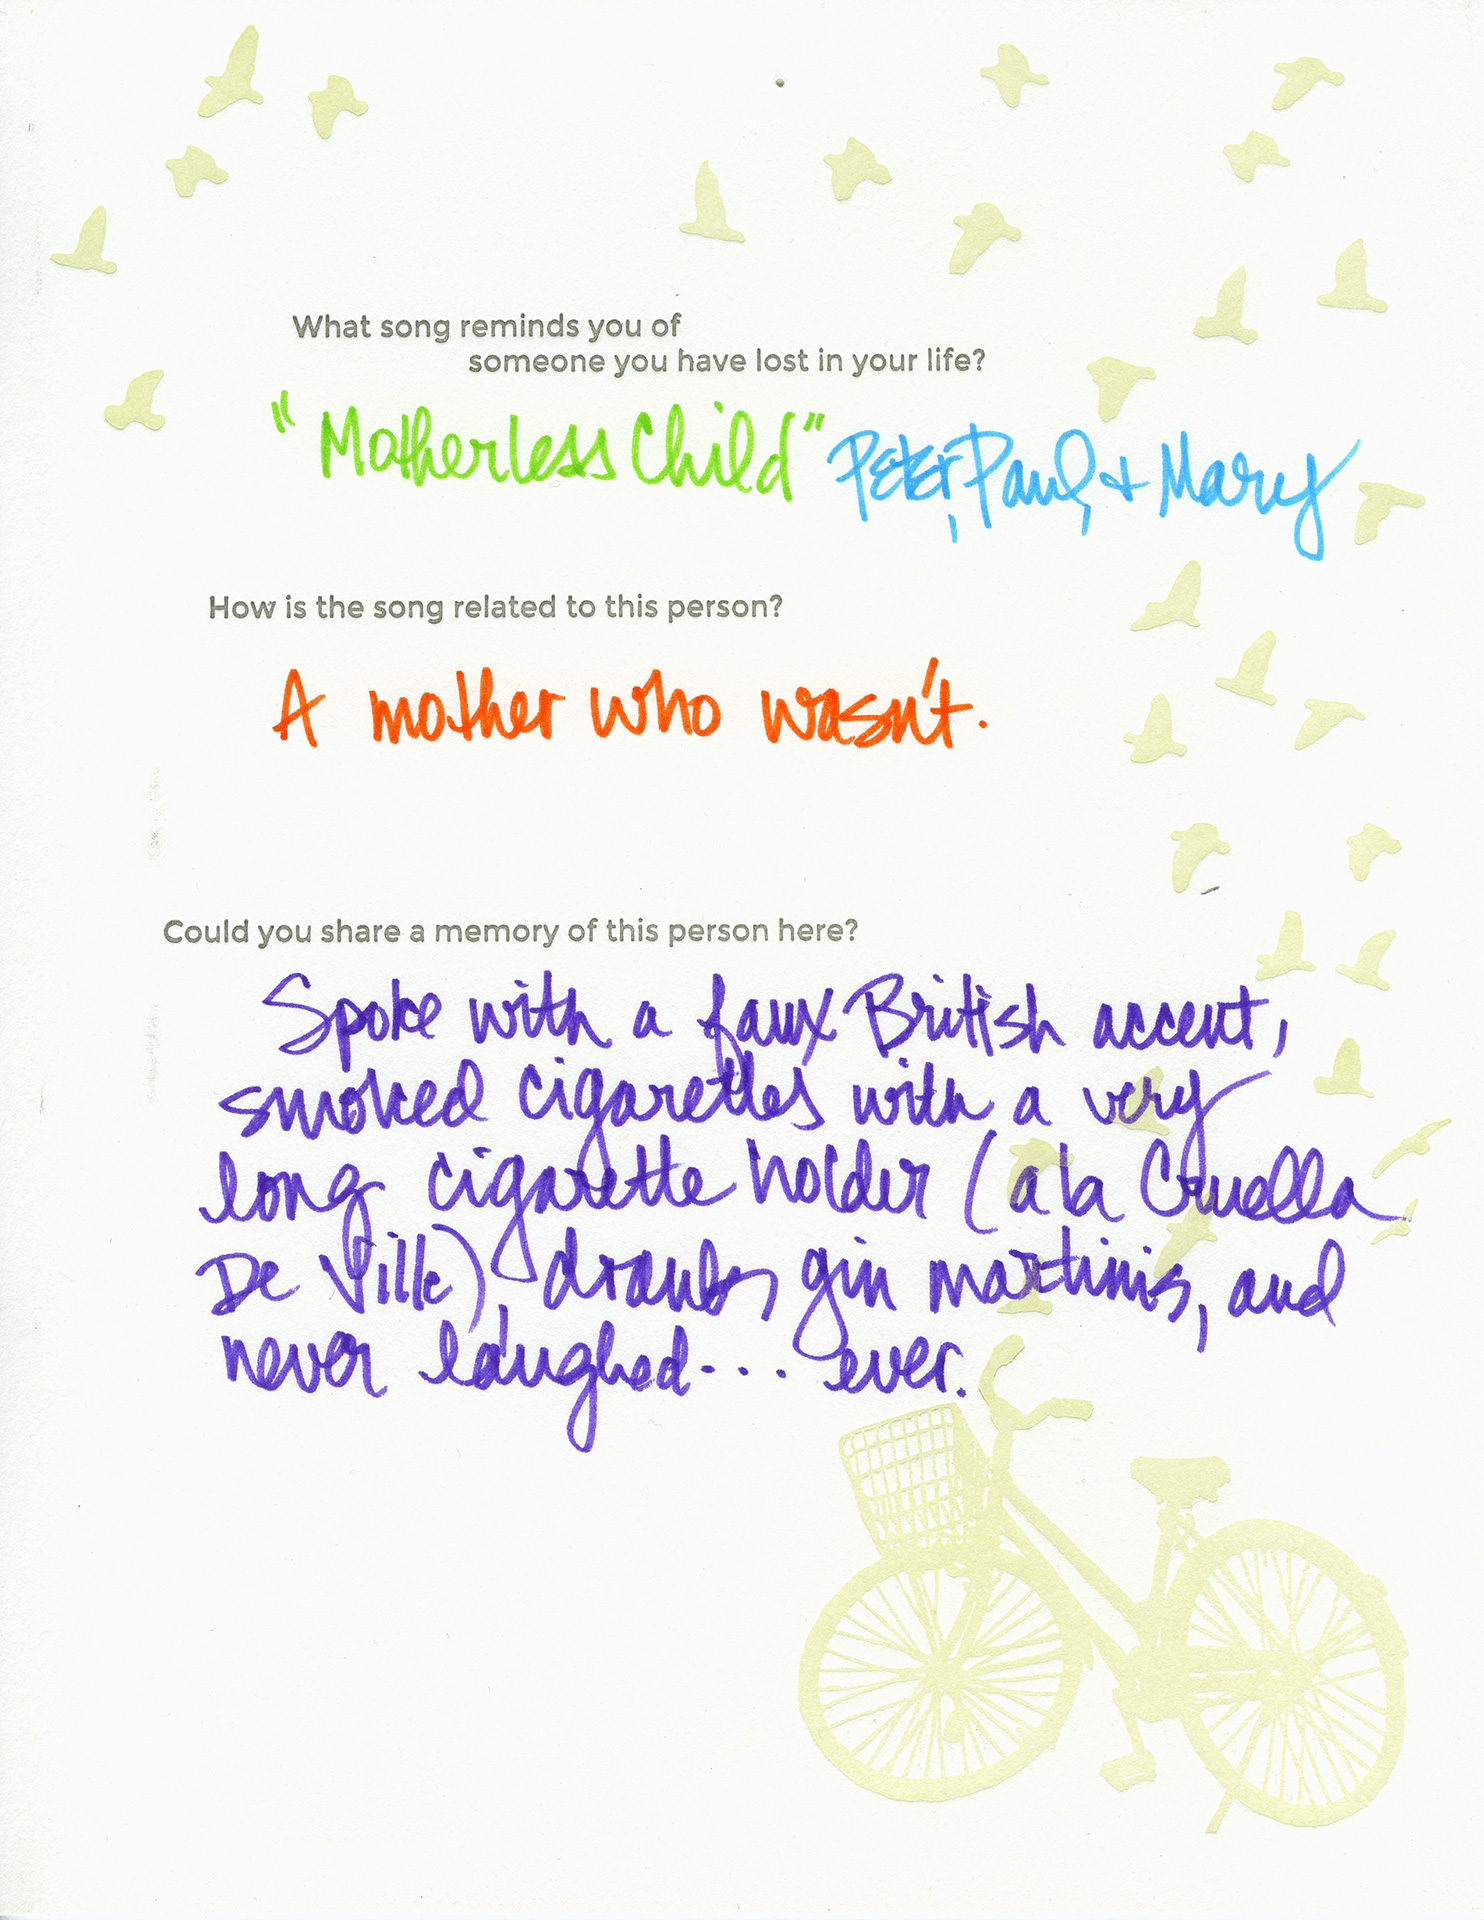 What song reminds you of
someone you have lost in your life?
"Motherless Child" Peter, Paul, + Mary
How is the song related to this person?
A mother who wasn't.
Could you share a memory of this person here?
Spoke with a faux British accent,
smoked cigarettes with a very
long cigarette holder (a la Cruella
De Ville), drank gin martinis, and
never laughed... ever.